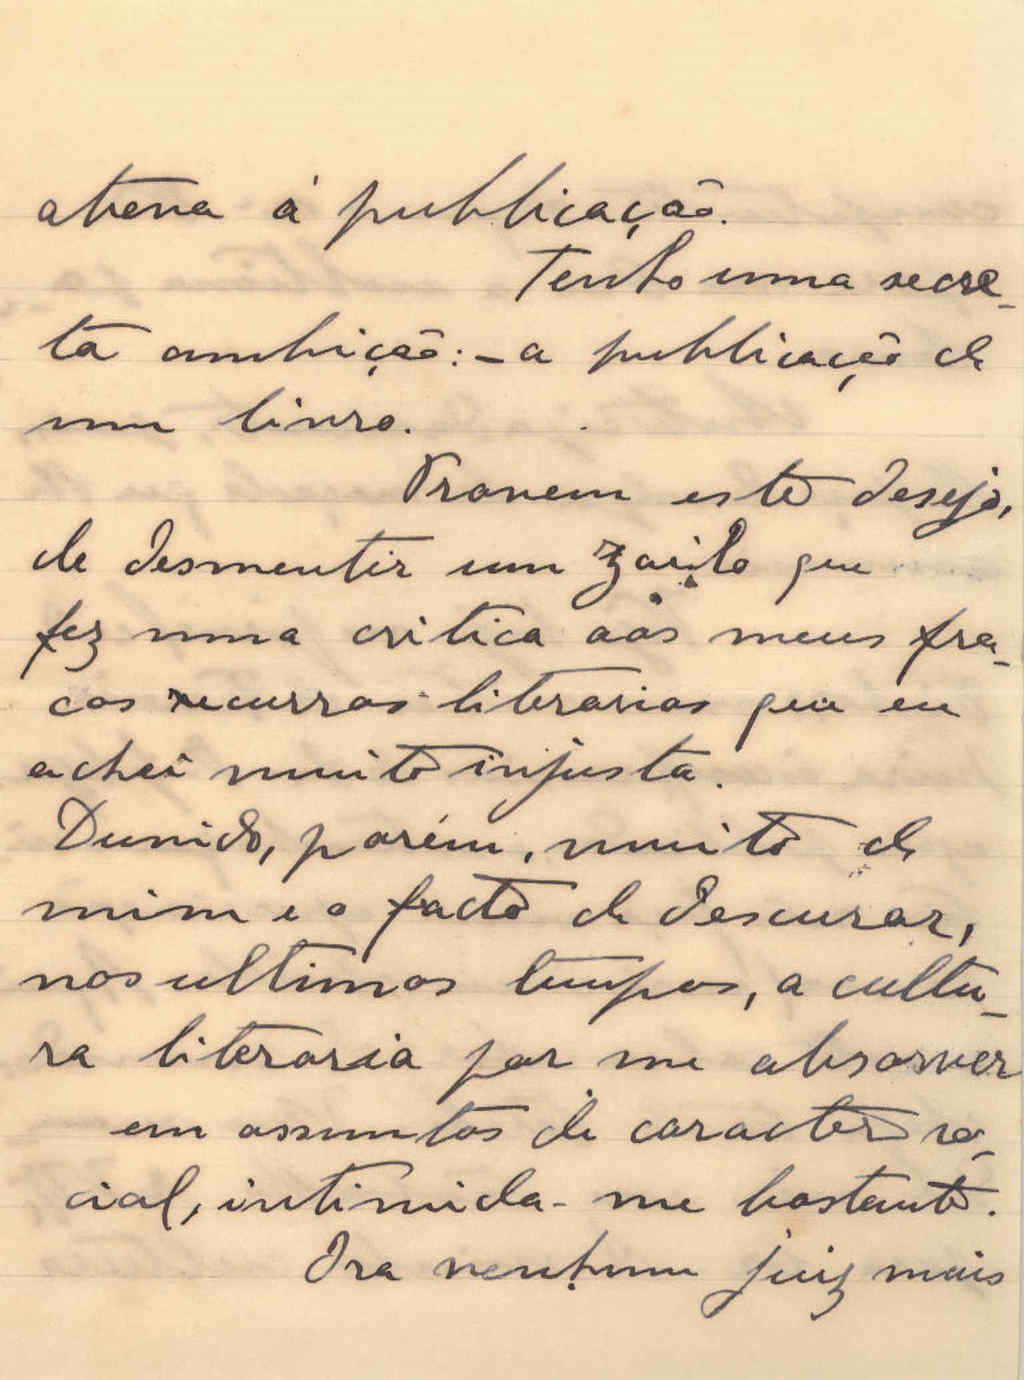 atreva á publicação.
Tenho uma secre-
ta ambição: - a publicação de
um livro.
Provem este desejo,
de desmentir um Zoilo que
fez uma critica aos meus fra-
cos recursos literarios que eu
achei muito injusta.
Duvido, porém, muito de
mim e o facto de descurar,
nos ultimos tempos, a cultu-
ra literaria por me absorver
em assuntos de caracter so-
cial, intimida-me bastante.
Ora nenhum juiz mais